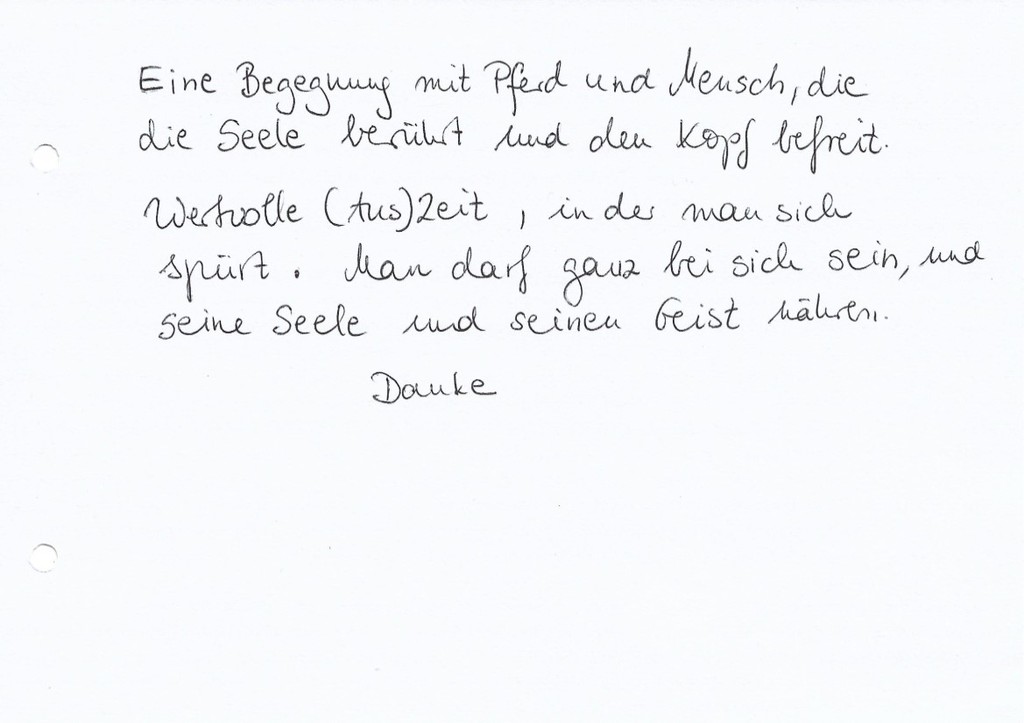 Eine Begegnung mit Pferd und Mensch, die
die Seele berührt und den Kopf befreit.
Wertvolle (Aus)Zeit, in der man sich
spürt. Man darf ganz bei sich sein, und
seine Seele und seinen Geist nähren.
Danke